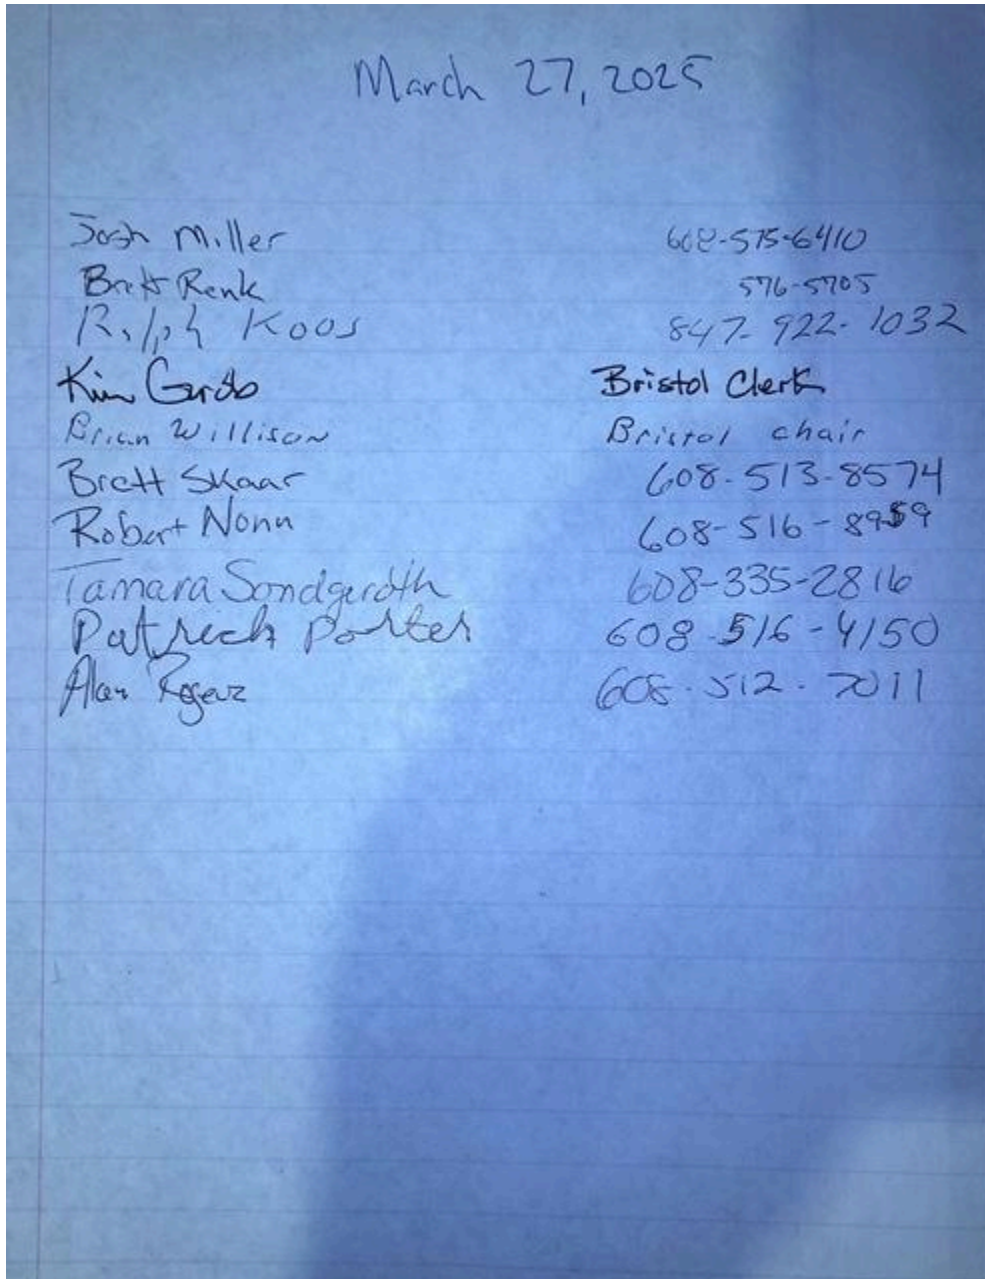 March 27, 2025
Josh Miller 608-575-6410
Brett Renk 576-5705
Ralph Koos 847-922-1032
Kim Bristol Clerk
Brian Willison Bristol chair
Brett Skaar 608-513-8574
Robert Nonn 608-516-8959
Tamara Sondgeroth 608-335-2816
Patrick Porter 608-516-4150
Alan 608-512-7011